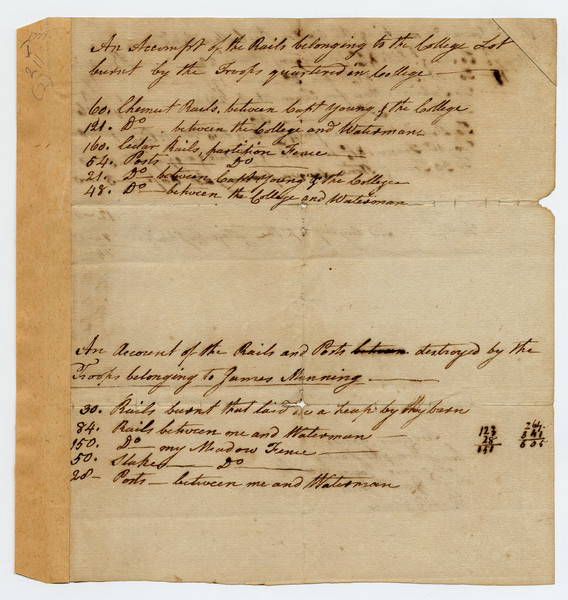 An Accompt of the Rails belonging to the College Lot
burnt by the Troops quartered in College
60. Chesnut Rails, between Capt Young & the College
121. Do between the College and Watermans
160. Cedar Rails, partition Fence
54. Posts Do
21. Do between Capt Young & the College
48. Do between the College and Waterman
An Account of the Rails and Posts between destroyed by the
Troops belonging to James Manning
30. Rails burnt that laid in a heap by my barn
84. Rails between me and Waterman
150. Do my Meadow Fence
50. Stakes Do
28 Posts between me and Waterman